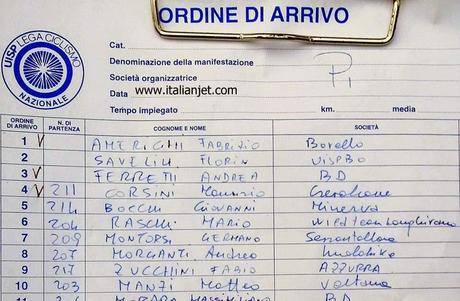 ORDINE DI ARRIVO
UISP LEGA CICLISMO
NAZIONALE
Cat.
Denominazione della manifestazione
P1
Società organizzatrice
Data www.italianjet.com
Tempo impiegato km. media
ORDINE DI ARRIVO N. DI PARTENZA COGNOME E NOME SOCIETÀ
1 AMERIGHI FABRIZIO Borello
2 SAVELIU FLORIN UISPBO
3 FERRETTI ANDREA BD
4 211 CORSINI Maurizio
5 214 BOCCHI GIOVANNI MINERVA
6 204 RASCHI MARIO Team Langhirano
7 209 MONTORSI GERMANO
8 207 MORGANTI Andrea
9 217 ZUCCHINI FABIO AZZURRA
10 203 MANZI Matteo Voltana
11 MASSIMILIANO BD